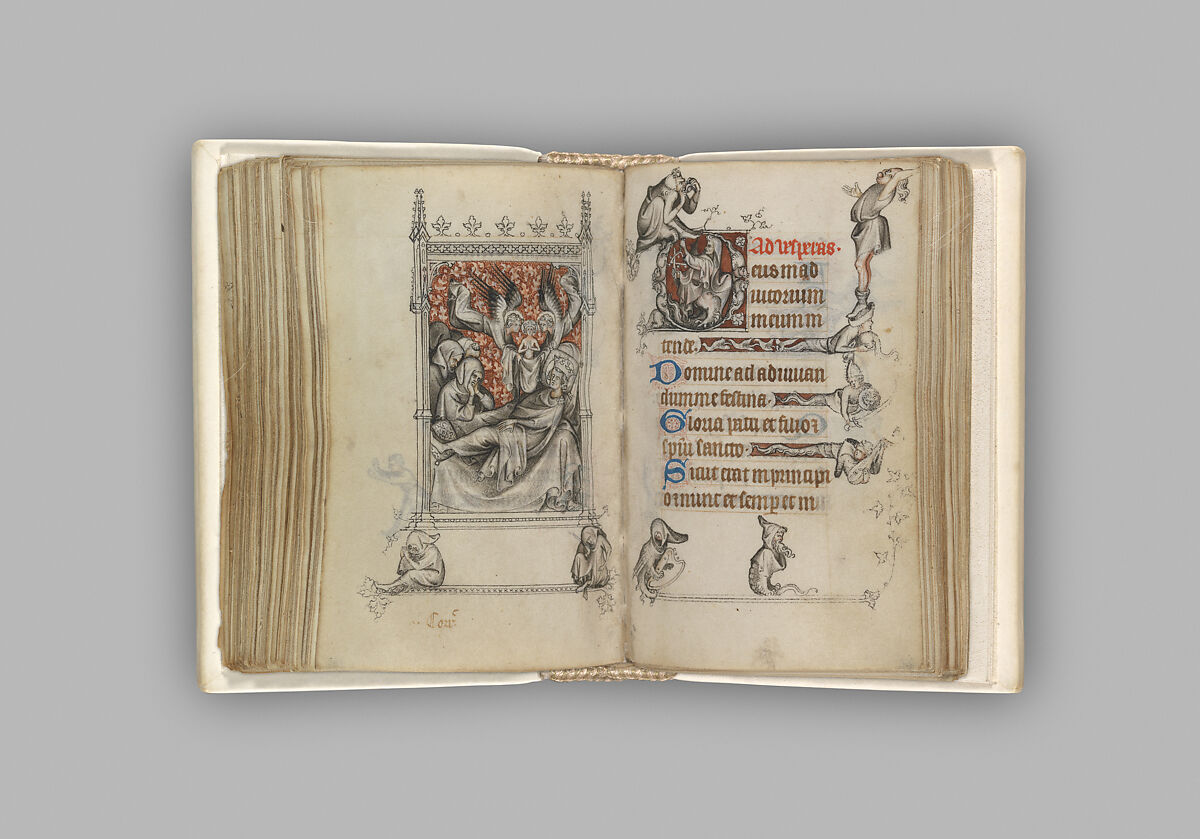 Cor
Ad vesperas.
Deus in ad
iutorium
meum in
tende.
Domine ad adiuuan
dum me festina.
Gloria patri et filio
spũi sancto.
Sicut erat in principi
o et nunc et semp et in